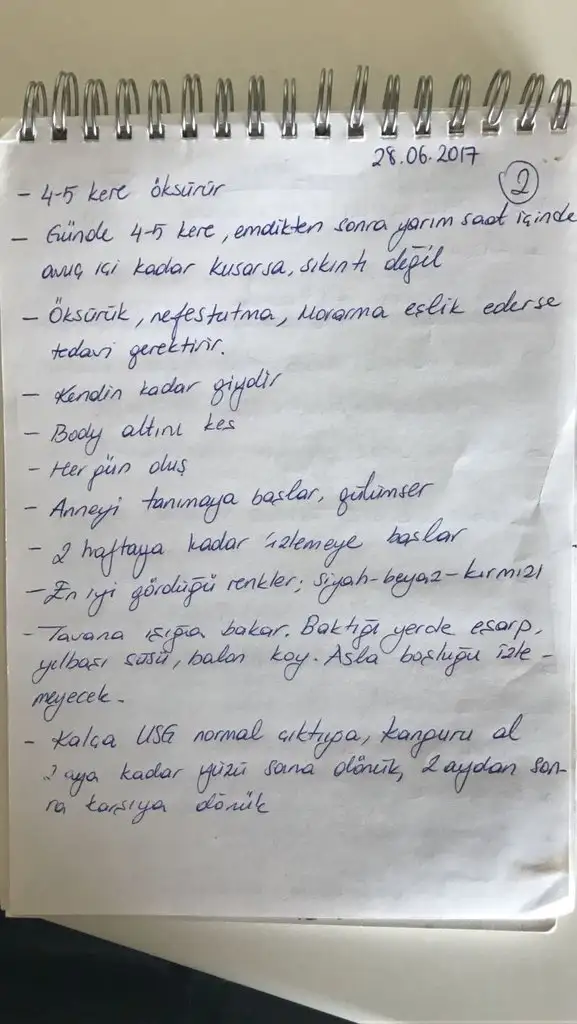 28.06.2017
2
- 4-5 kere öksürür
- Günde 4-5 kere, emdikten sonra yarım saat içinde
avuç içi kadar kusarsa, sıkıntı değil
- Öksürük, nefes tutma, morarma eşlik ederse
tedavi gerektirir.
- Kendin kadar giydir
- Body altını kes
- Her gün duş
- Anneyi tanımaya başlar, gülümser
- 2 haftaya kadar izlemeye başlar
- En iyi gördüğü renkler; siyah-beyaz-kırmızı
- Tavana ışığa bakar. Baktığı yerde eşarp,
yılbaşı süsü, balon koy. Asla boşluğu izle-
meyecek.
- Kalça USG normal çıktıysa, kanguru al
2 aya kadar yüzü sana dönük, 2 aydan son-
ra karşıya dönük